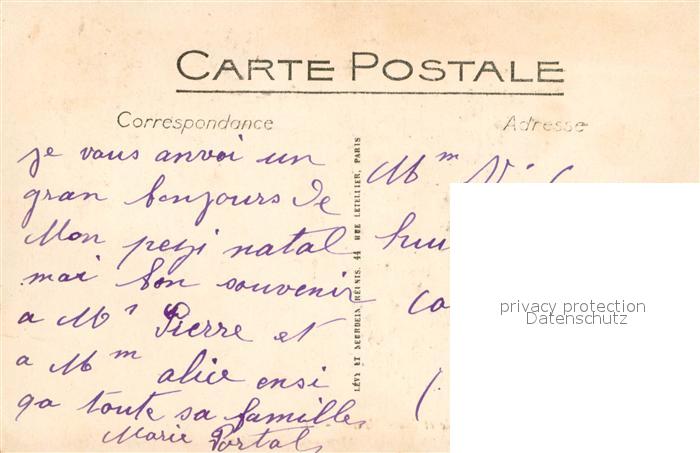 CARTE POSTALE
Correspondance
Adresse
je vous anvoi un
gran bonjours de
Mon peyi natal
mai bon souvenir
a Mr Pierre et
a Mm alice ensi
qa toute sa famille
Marie Portal
LÉVY ET NEURDEIN RÉUNIS, 44 RUE LETELLIER, PARIS
Mm
privacy protection
Datenschutz